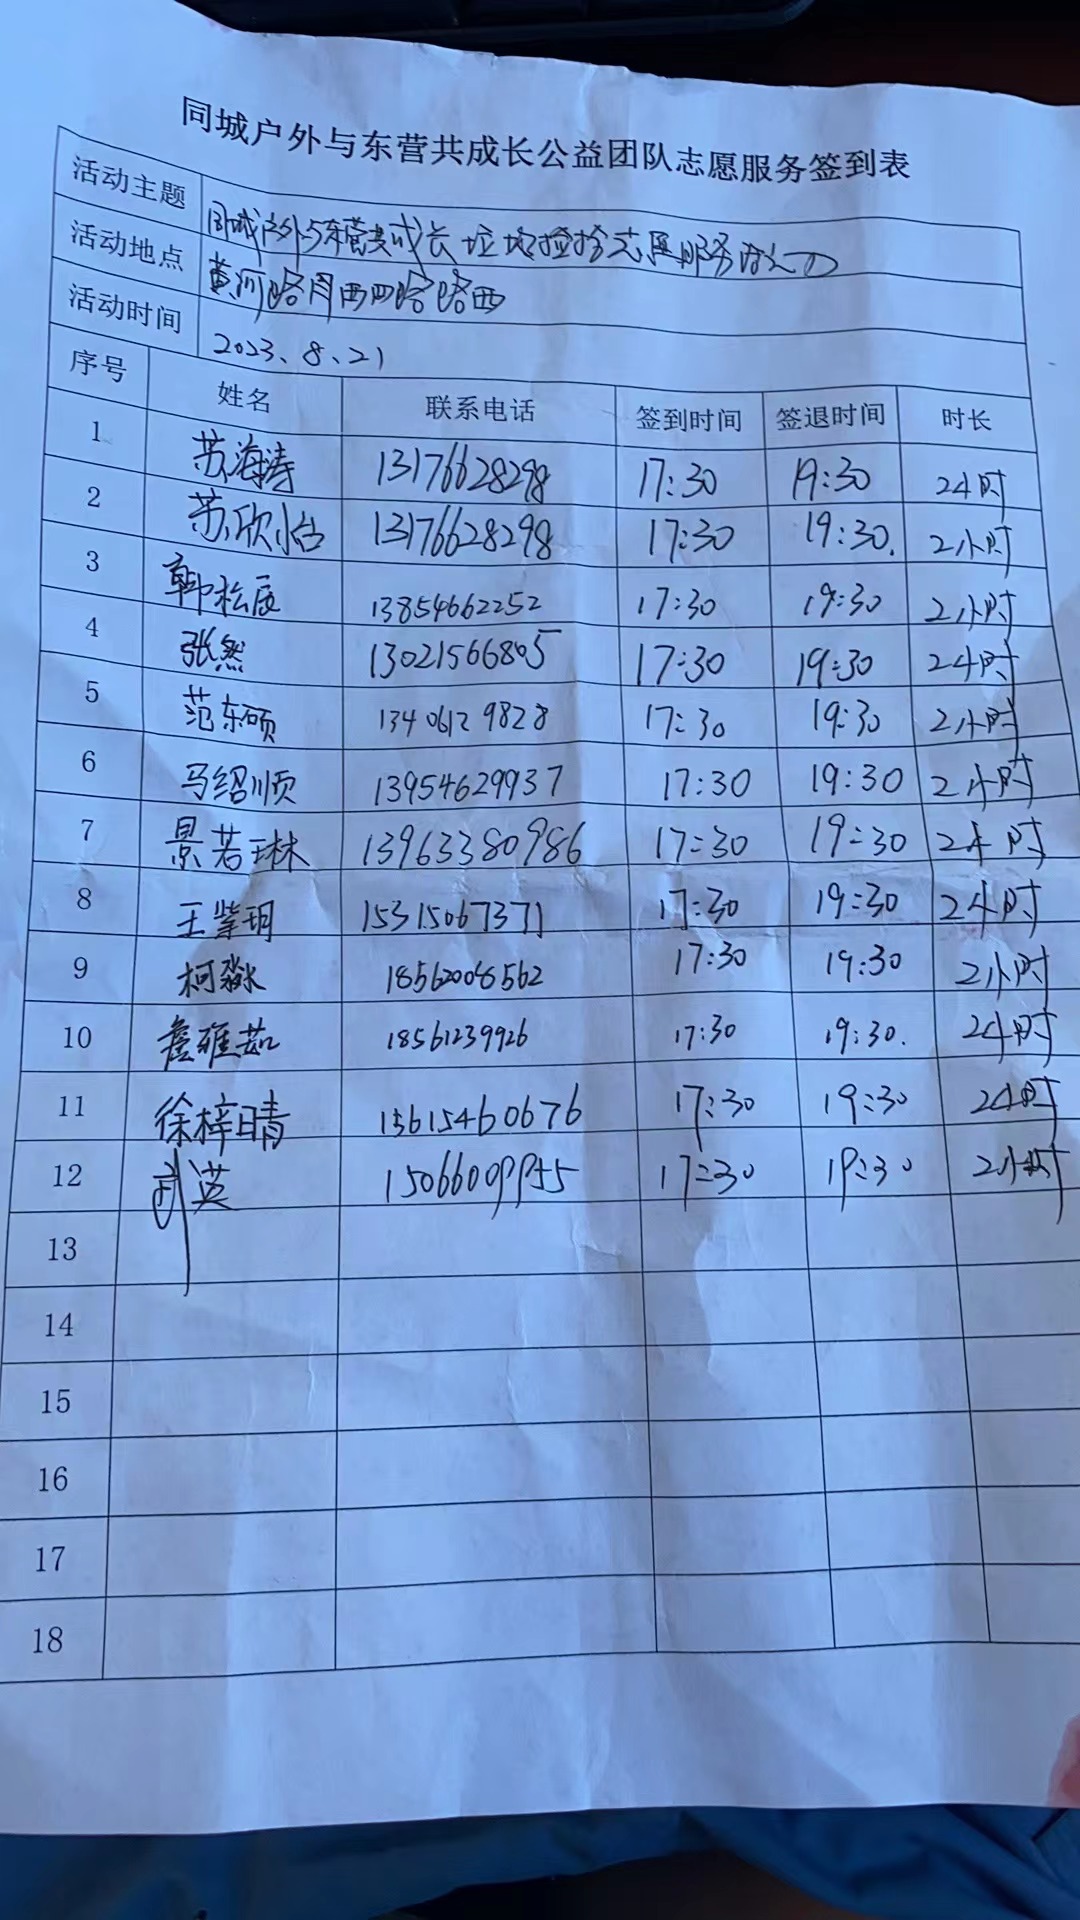 同城户外与东营共成长公益团队志愿服务签到表
活动主题 同城户外与东营共成长垃圾捡拾志愿服务活动
活动地点 黄河路 西四路路西
活动时间 2023、8、21
序号 姓名 联系电话 签到时间 签退时间 时长
1 苏海涛 13176628298 17:30 19:30 2小时
2 苏欣怡 13176628298 17:30 19:30. 2小时
3 韩松辰 13854662252 17:30 19:30 2小时
4 张然 13021566805 17:30 19:30 2小时
5 范东硕 13406129828 17:30 19:30 2小时
6 马绍顺 13954629937 17:30 19:30 2小时
7 景若琳 13963380986 17:30 19:30 2小时
8 王紫玥 15315067371 17:30 19:30 2小时
9 柯淼 18562008562 17:30 19:30 2小时
10 詹雅茹 18561239926 17:30 19:30. 2小时
11 徐梓晴 15615460676 17:30 19:30 2小时
12 英 15066009955 17:30 19:30 2小时
13
14
15
16
17
18